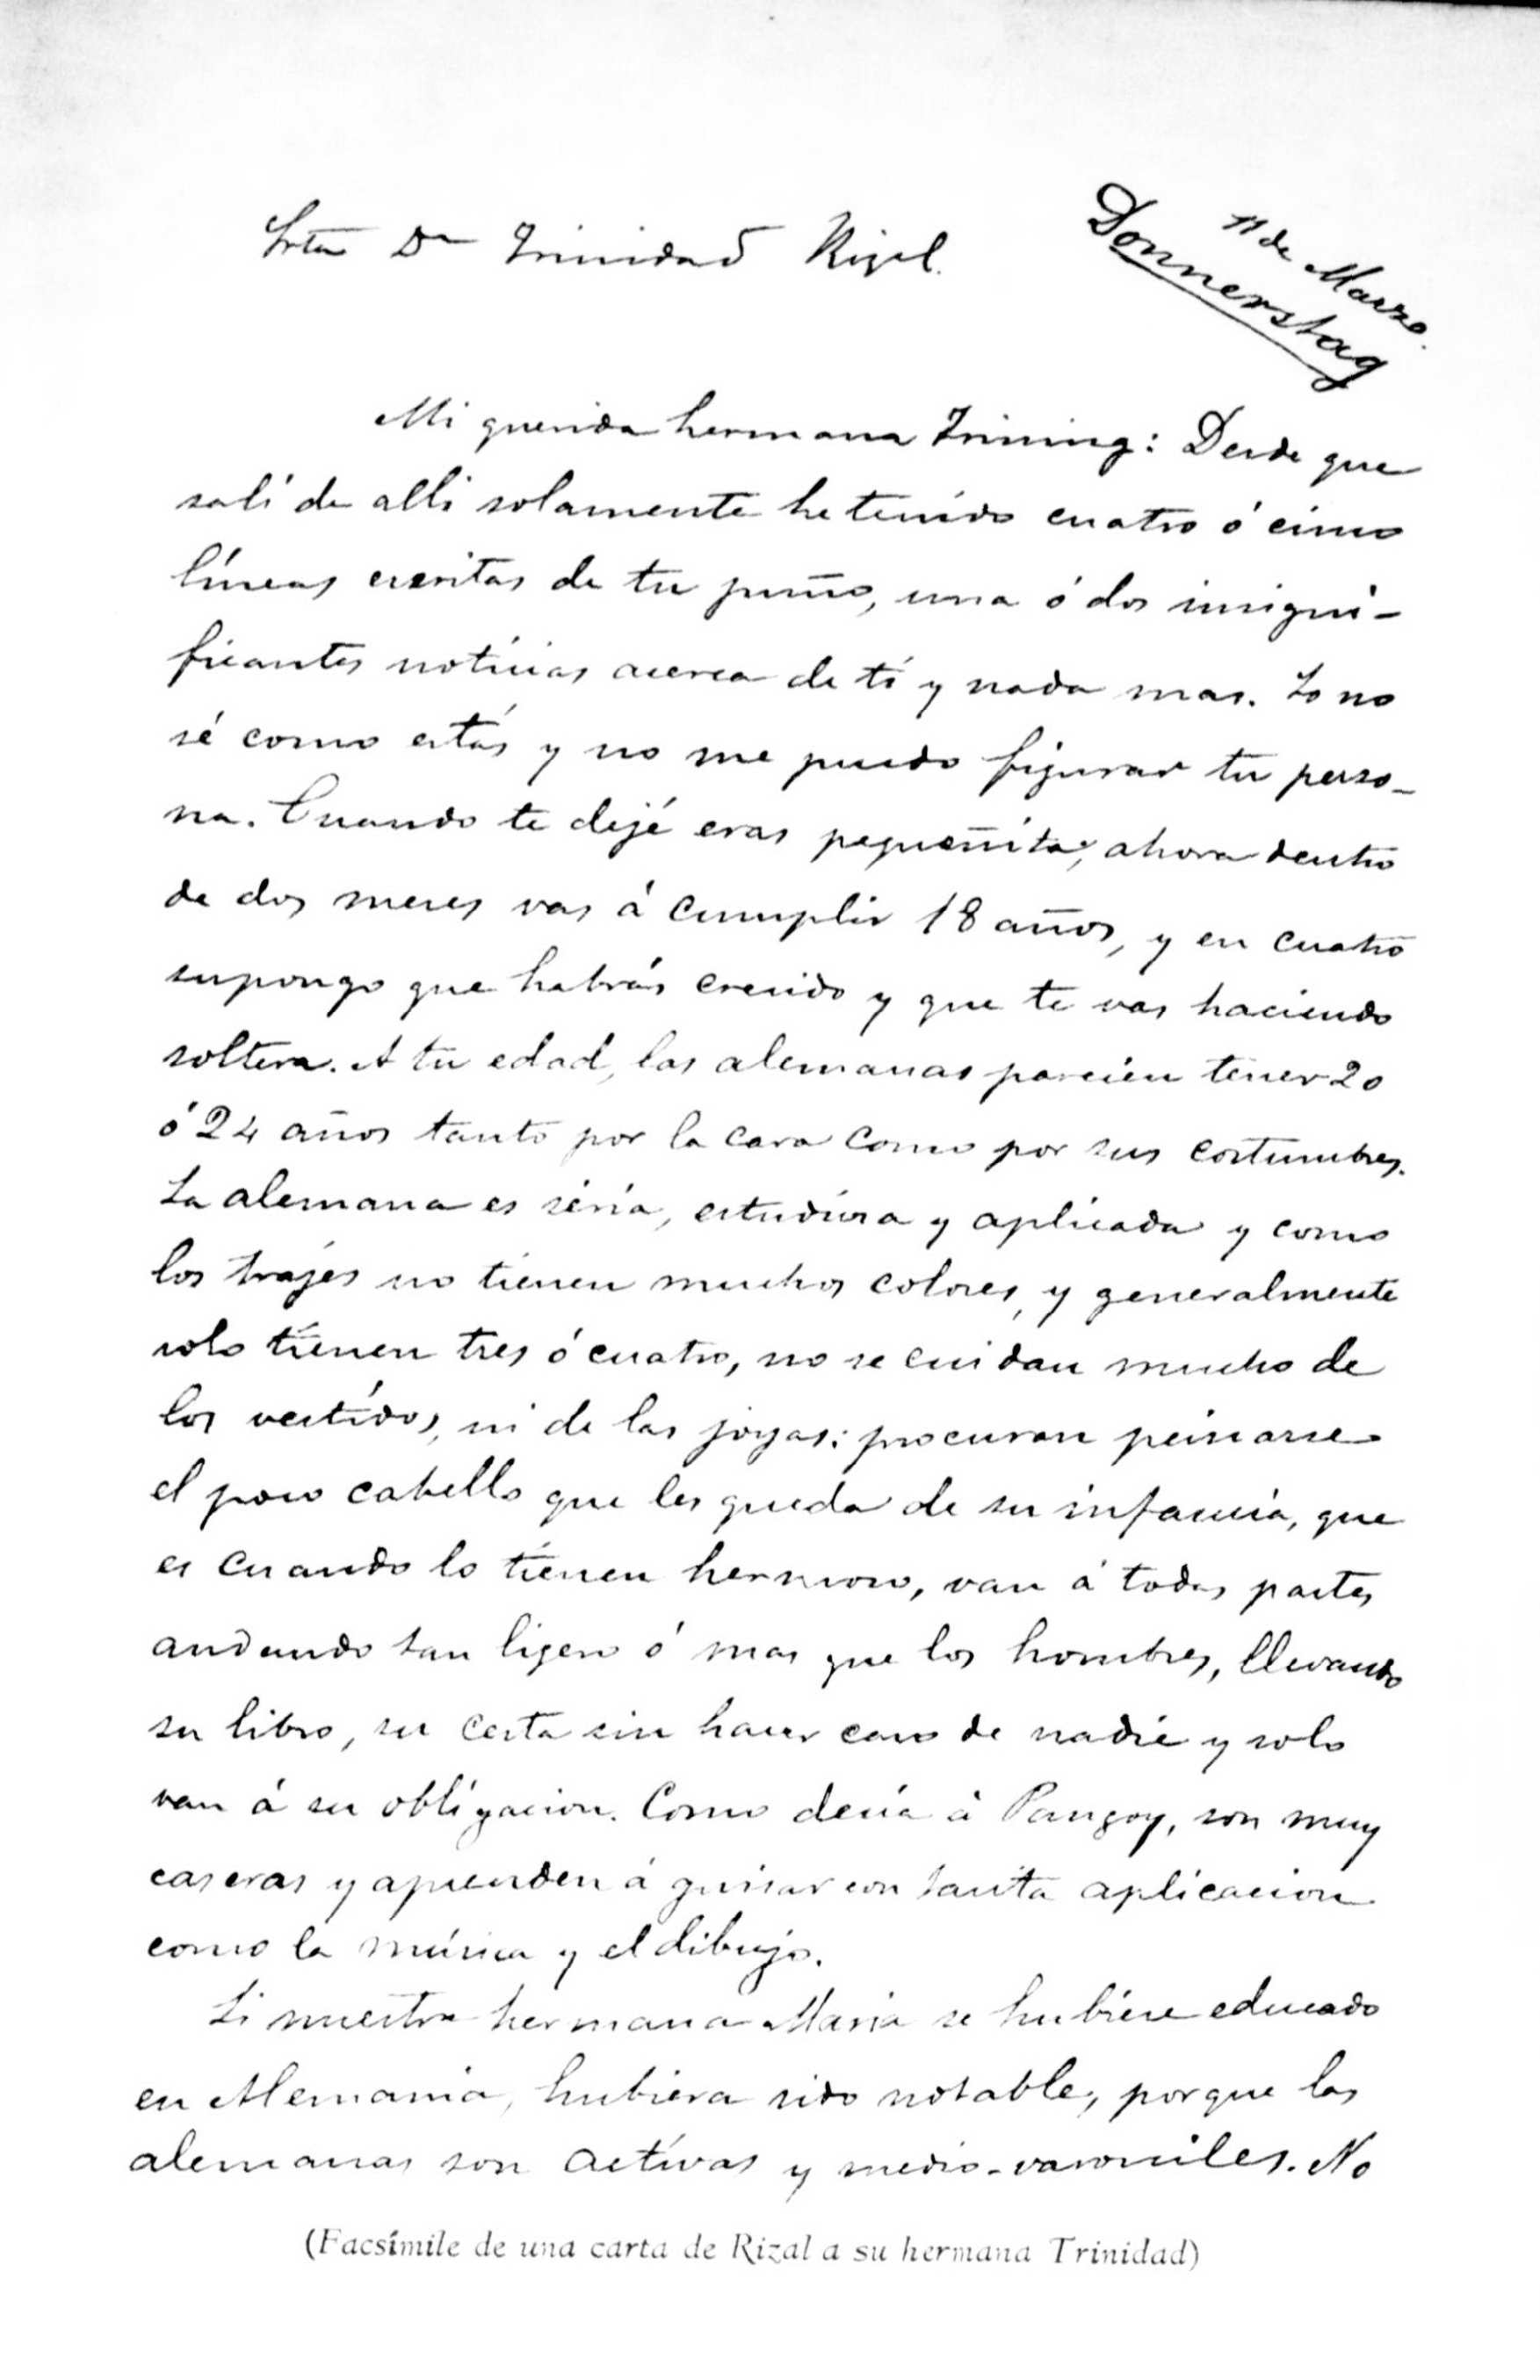 Srta Dª Trinidad Rizal.
11 de Marzo.
Donnerstag
Mi querida hermana Trining: Desde que
salí de alli solamente he tenido cuatro ó cinco
líneas escritas de tu puño, una ó dos insigni-
ficantes noticias acerca de tí y nada mas. Yo no
sé como estás y no me puedo figurar tu perso-
na. Cuando te dejé eras pequeñita; ahora dentro
de dos meses vas á cumplir 18 años, y en cuatro
supongo que habrás crecido y que te vas haciendo
soltera. A tu edad, las alemanas parecien tener 20
ó 24 años tanto por la cara como por sus costumbres.
La alemana es séria, estudiosa y aplicada y como
los trajes no tienen muchos colores, y generalmente
solo tienen tres ó cuatro, no se cuidan mucho de
los vestidos, ni de las joyas: procuran peinarse
el poco cabello que les queda de su infancia, que
es cuando lo tienen hermoso, van á todas partes
andando tan ligero ó mas que los hombres, llevando
su libro, su cesta sin hacer caso de nadie y solo
van á su obligacion. Como decía á Pangoy, son muy
caseras y aprenden á guisar con tanta aplicacion
como la música y el dibujo.
Si nuestra hermana Maria se hubiese educado
en Alemania, hubiera sido notable, porque las
alemanas son activas y medio-varoniles. No
(Facsímile de una carta de Rizal a su hermana Trinidad)